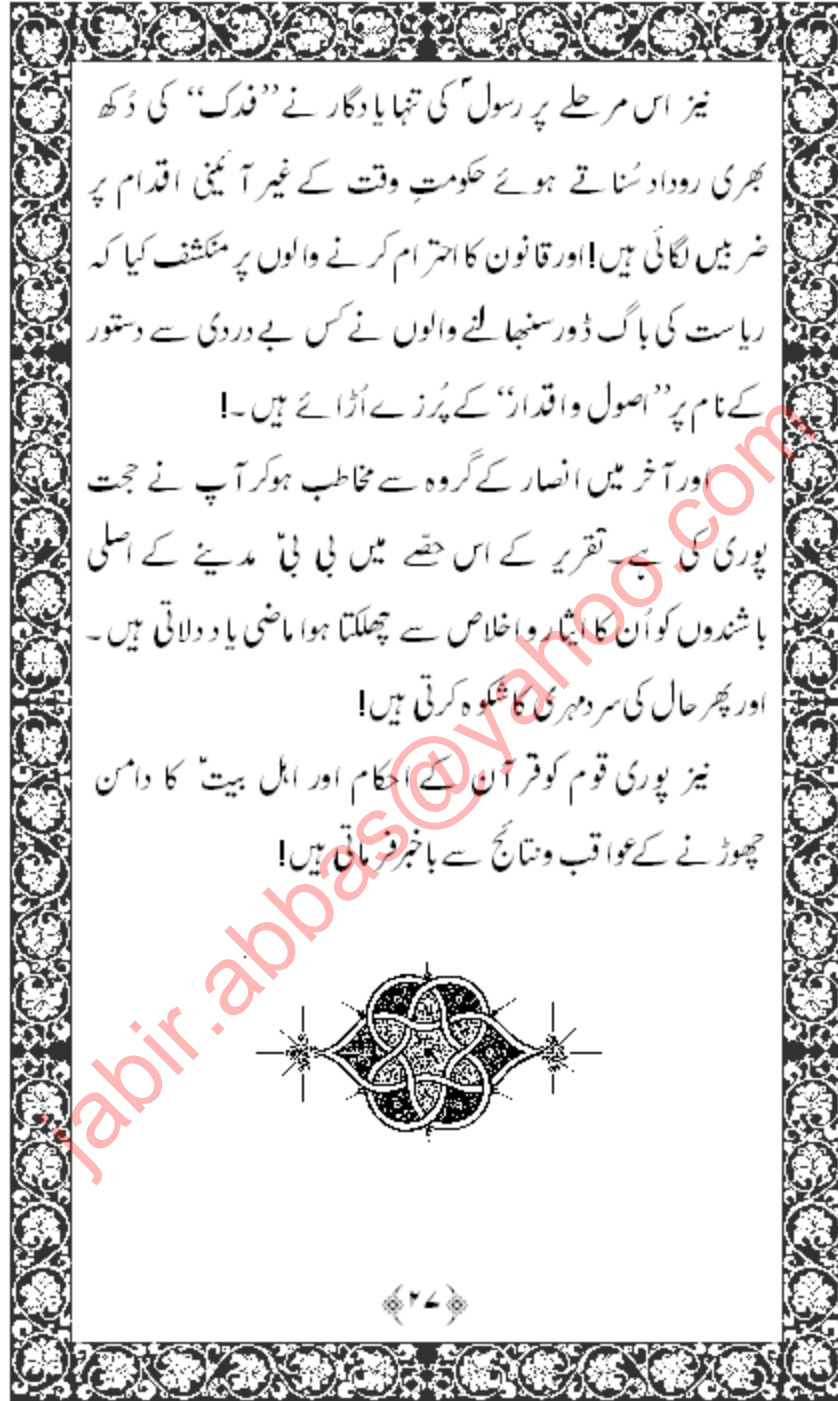 نیز اس مرحلے پر رسولؐ کی تنہا یادگار نے ’’فدک‘‘ کی دُکھ
بھری روداد سُناتے ہوئے حکومتِ وقت کے غیر آئینی اقدام پر
ضربیں لگائی ہیں! اور قانون کا احترام کرنے والوں پر منکشف کیا کہ
ریاست کی باگ ڈور سنبھالنے والوں نے کس بے دردی سے دستور
کے نام پر ’’اصول و اقدار‘‘ کے پُرزے اُڑائے ہیں۔!
اور آخر میں انصار کے گروہ سے مخاطب ہوکر آپ نے حجت
پوری کی ہے۔ تقریر کے اس حصّے میں بی بیؑ مدینے کے اصلی
باشندوں کو اُن کا ایثار و اخلاص سے چھلکتا ہوا ماضی یاد دلاتی ہیں۔
اور پھر حال کی سرد مہری کا شکوہ کرتی ہیں!
نیز پوری قوم کو قرآن کے احکام اور اہل بیتؑ کا دامن
چھوڑنے کے عواقب و نتائج سے باخبر فرماتی ہیں!
jabir.abbas@yahoo.com
﴿۲۷﴾